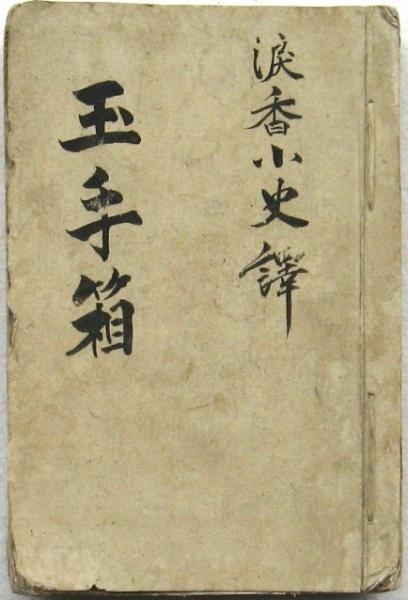 涙香小史譯
玉手箱